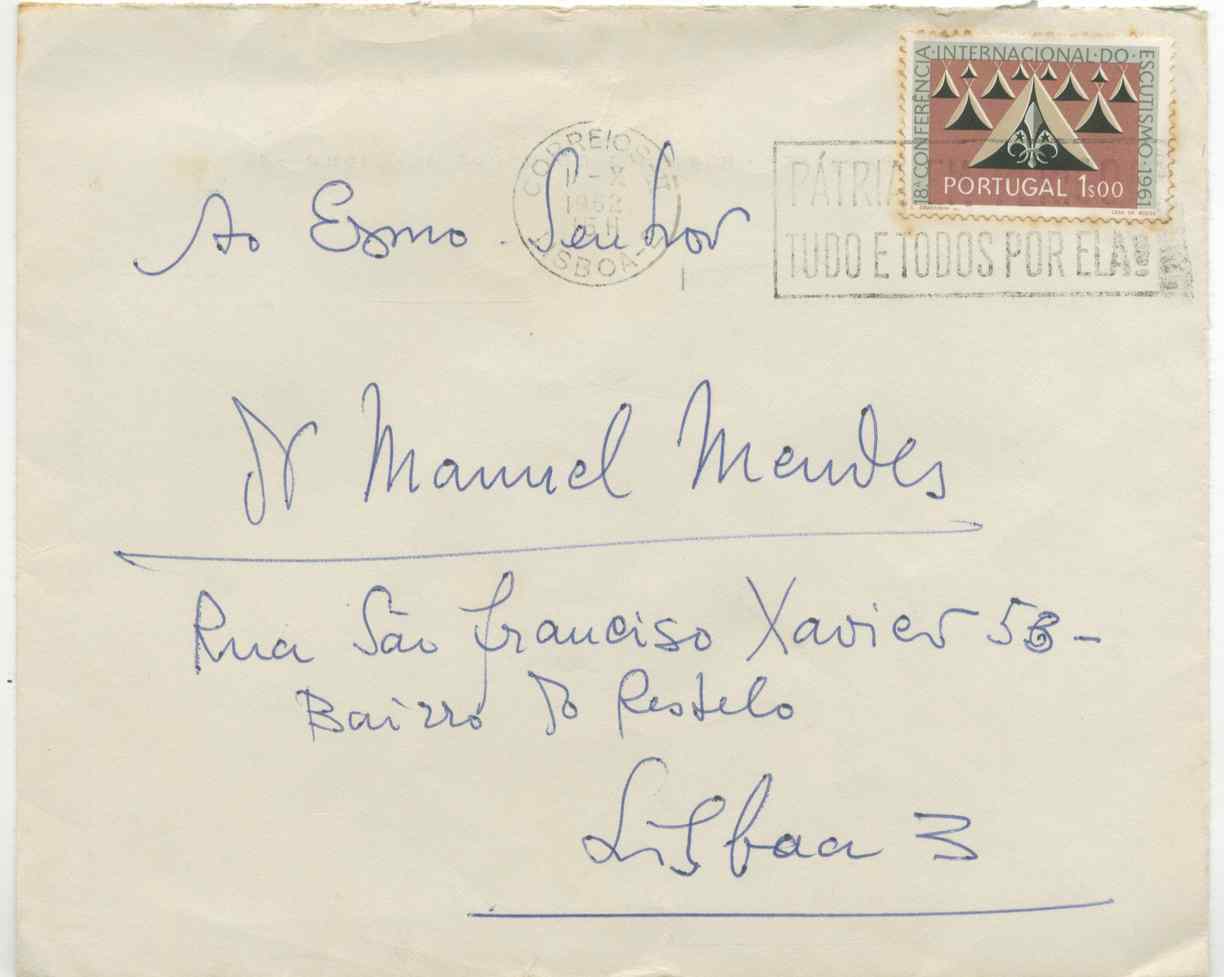 18ª CONFERÊNCIA · INTERNACIONAL · DO · ESCUTISMO · 1961
PORTUGAL 1$00
CORREIOS
1-X
1962
LISBOA
PÁTRIA
TUDO E TODOS POR ELA!
Ao Exmo. Senhor
Dr Manuel Mendes
Rua São Franciso Xavier 5B-
Bairro do Restelo
Lisboa 3